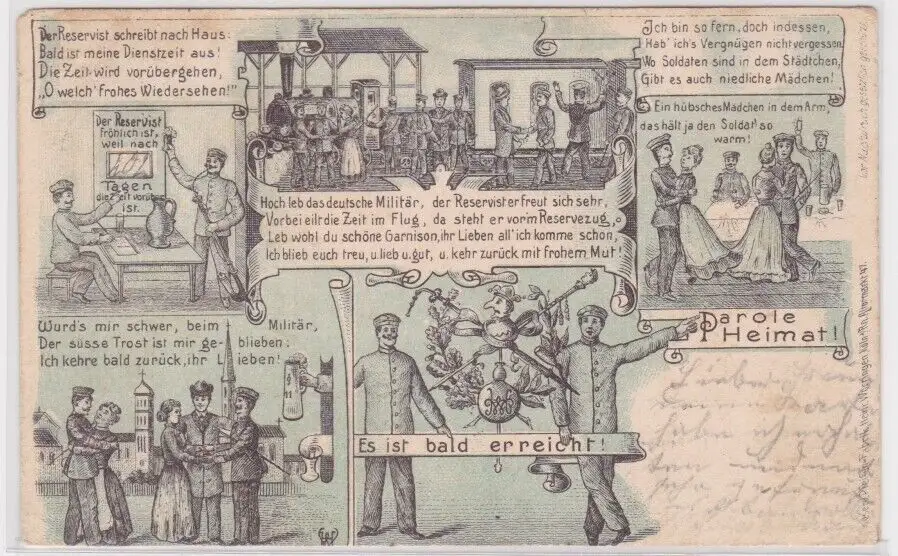 Der Reservist schreibt nach Haus:
Bald ist meine Dienstzeit aus!
Die Zeit wird vorübergehen,
„O welch' frohes Wiedersehen!"
Der Reservist
fröhlich ist,
weil nach
Tagen
die Zeit vorüber
ist.
Hoch leb das deutsche Militär, der Reservist erfreut sich sehr,
Vorbei eilt die Zeit im Flug, da steht er vorm Reservezug,
Leb wohl du schöne Garnison, ihr Lieben all' ich komme schon,
Ich blieb euch treu, u. lieb u. gut, u. kehr zurück mit frohem Mut!
Ich bin so fern, doch indessen,
Hab' ich's Vergnügen nicht vergessen.
Wo Soldaten sind in dem Städtchen,
Gibt es auch niedliche Mädchen!
Ein hübsches Mädchen in dem Arm,
das hält ja den Soldat so
warm!
Wurd's mir schwer, beim Militär,
Der süsse Trost ist mir ge- blieben:
Ich kehre bald zurück, ihr Lieben!
Parole
Heimat!
Es ist bald erreicht!